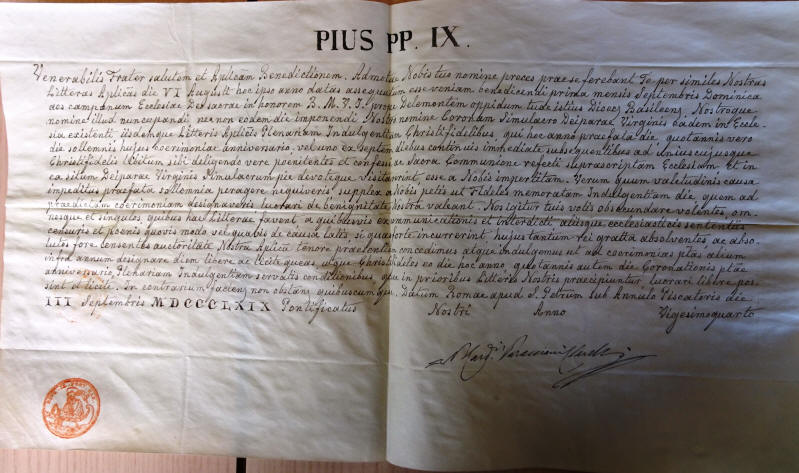 PIUS PP. IX.
Venerabilis Frater salutem et Aplicam Benedictionem. Admotae Nobis tuo nomine preces prae se ferebant Te per similes Nostras
Litteras Aplicas die VI Augusti hoc ipso anno datas assequutum esse veniam benedicendi prima mensis Septembris Dominica
aes campanum Ecclesiae Deo sacrae in honorem B. M. V. I. prope Delemontem oppidum tudeistius Dioec. Basileen, Nostroque
nomine illud nuncupandi nec non eodem die imponendi Nostro nomine Coronam Simulacro Deiparae Virginis eadem in Eccle-
sia existenti iisdemque Litteris Aplicis Plenariam Indulgentiam Christifidelibus, qui hoc anno praefata die quotannis vero
die sollemnis hujus coerimoniae anniversario vel uno ex septem diebus continuis immediate subsequentibus ad uniuscujusque
Christifidelis libitum sibi deligendo vere poenitentes et confessi ac Sacra Communione refecti suprascriptam Ecclesiam et in
ea situm Deiparae Virginis Simulacrum pie devoteque visitaverint esse a Nobis impertitam. Verum quum valetudinis causa
impeditus praefata sollemnia peragere nequiveris supplex a Nobis petis ut Fideles memoratam Indulgentiam die quem ad
praedictam coerimoniam designaveris lucrari de benignitate Nostra valeant. Nos igitur tuis votis obsecundare volentes, om-
nesque et singulos quibus hae Litterae favent a quibusvis excommunicationis et interdicti, aliisque ecclesiasticis sententiis,
censuris et poenis quovis modo vel quavis de causa latis si quas forte incurrerint hujus tantum rei gratia absolventes, ac abso-
lutos fore censentes auctoritate Nostra Aplica tenore praesentium concedimus atque indulgemus ut ad coerimonias ptas alium
infra annum designare diem libere ac licite queas, utque Christifideles eo die hoc anno, quotannis autem die Coronationis ptae
anniversario, Plenariam Indulgentiam servatis conditionibus, quae in prioribus Litteris Nostris praecipiuntur lucrari libere pos-
sint et licite. In contrarium facien. non obstan. quibuscumque. Datum Romae apud S. Petrum sub Annulo Piscatoris die
III Septembris MDCCCLXIX Pontificatus Nostri Anno Vigesimoquarto